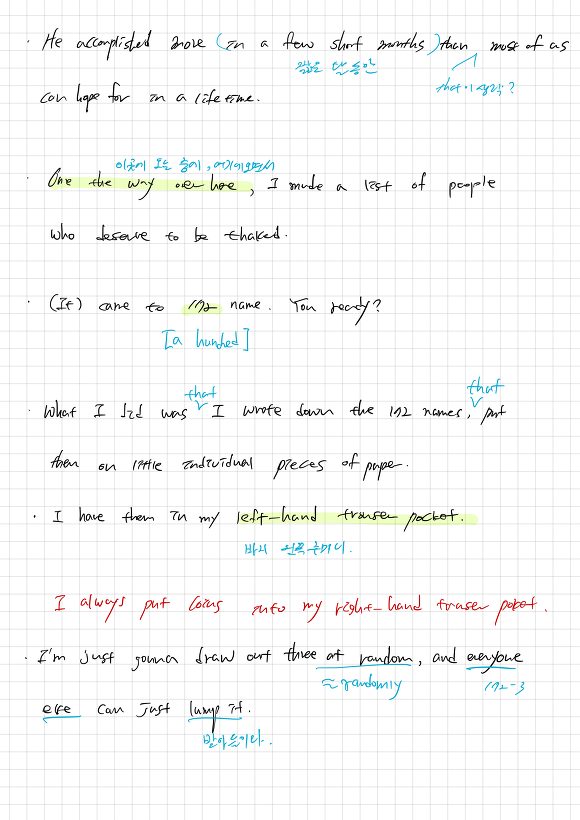 · He accomplished more (in a few short months) than most of as
짧은 몇 달 동안
that이 생략?
can hope for in a lifetime.
이곳에 오는 중에, 여기에 오면서
· One the way over here, I made a list of people
who deserve to be thaked.
· (It) came to 172 name. You ready?
[a hundred]
that
that
· What I did was ∨ I wrote down the 172 names, ∨ put
then on little individual pieces of paper.
· I have them in my left-hand trouser pocket.
바지 왼쪽 주머니.
I always put coins into my right-hand trouser poket.
· I'm just gonna draw out three at random, and everyone
≈ randomly
172-3
else can just lump it.
받아들이다.